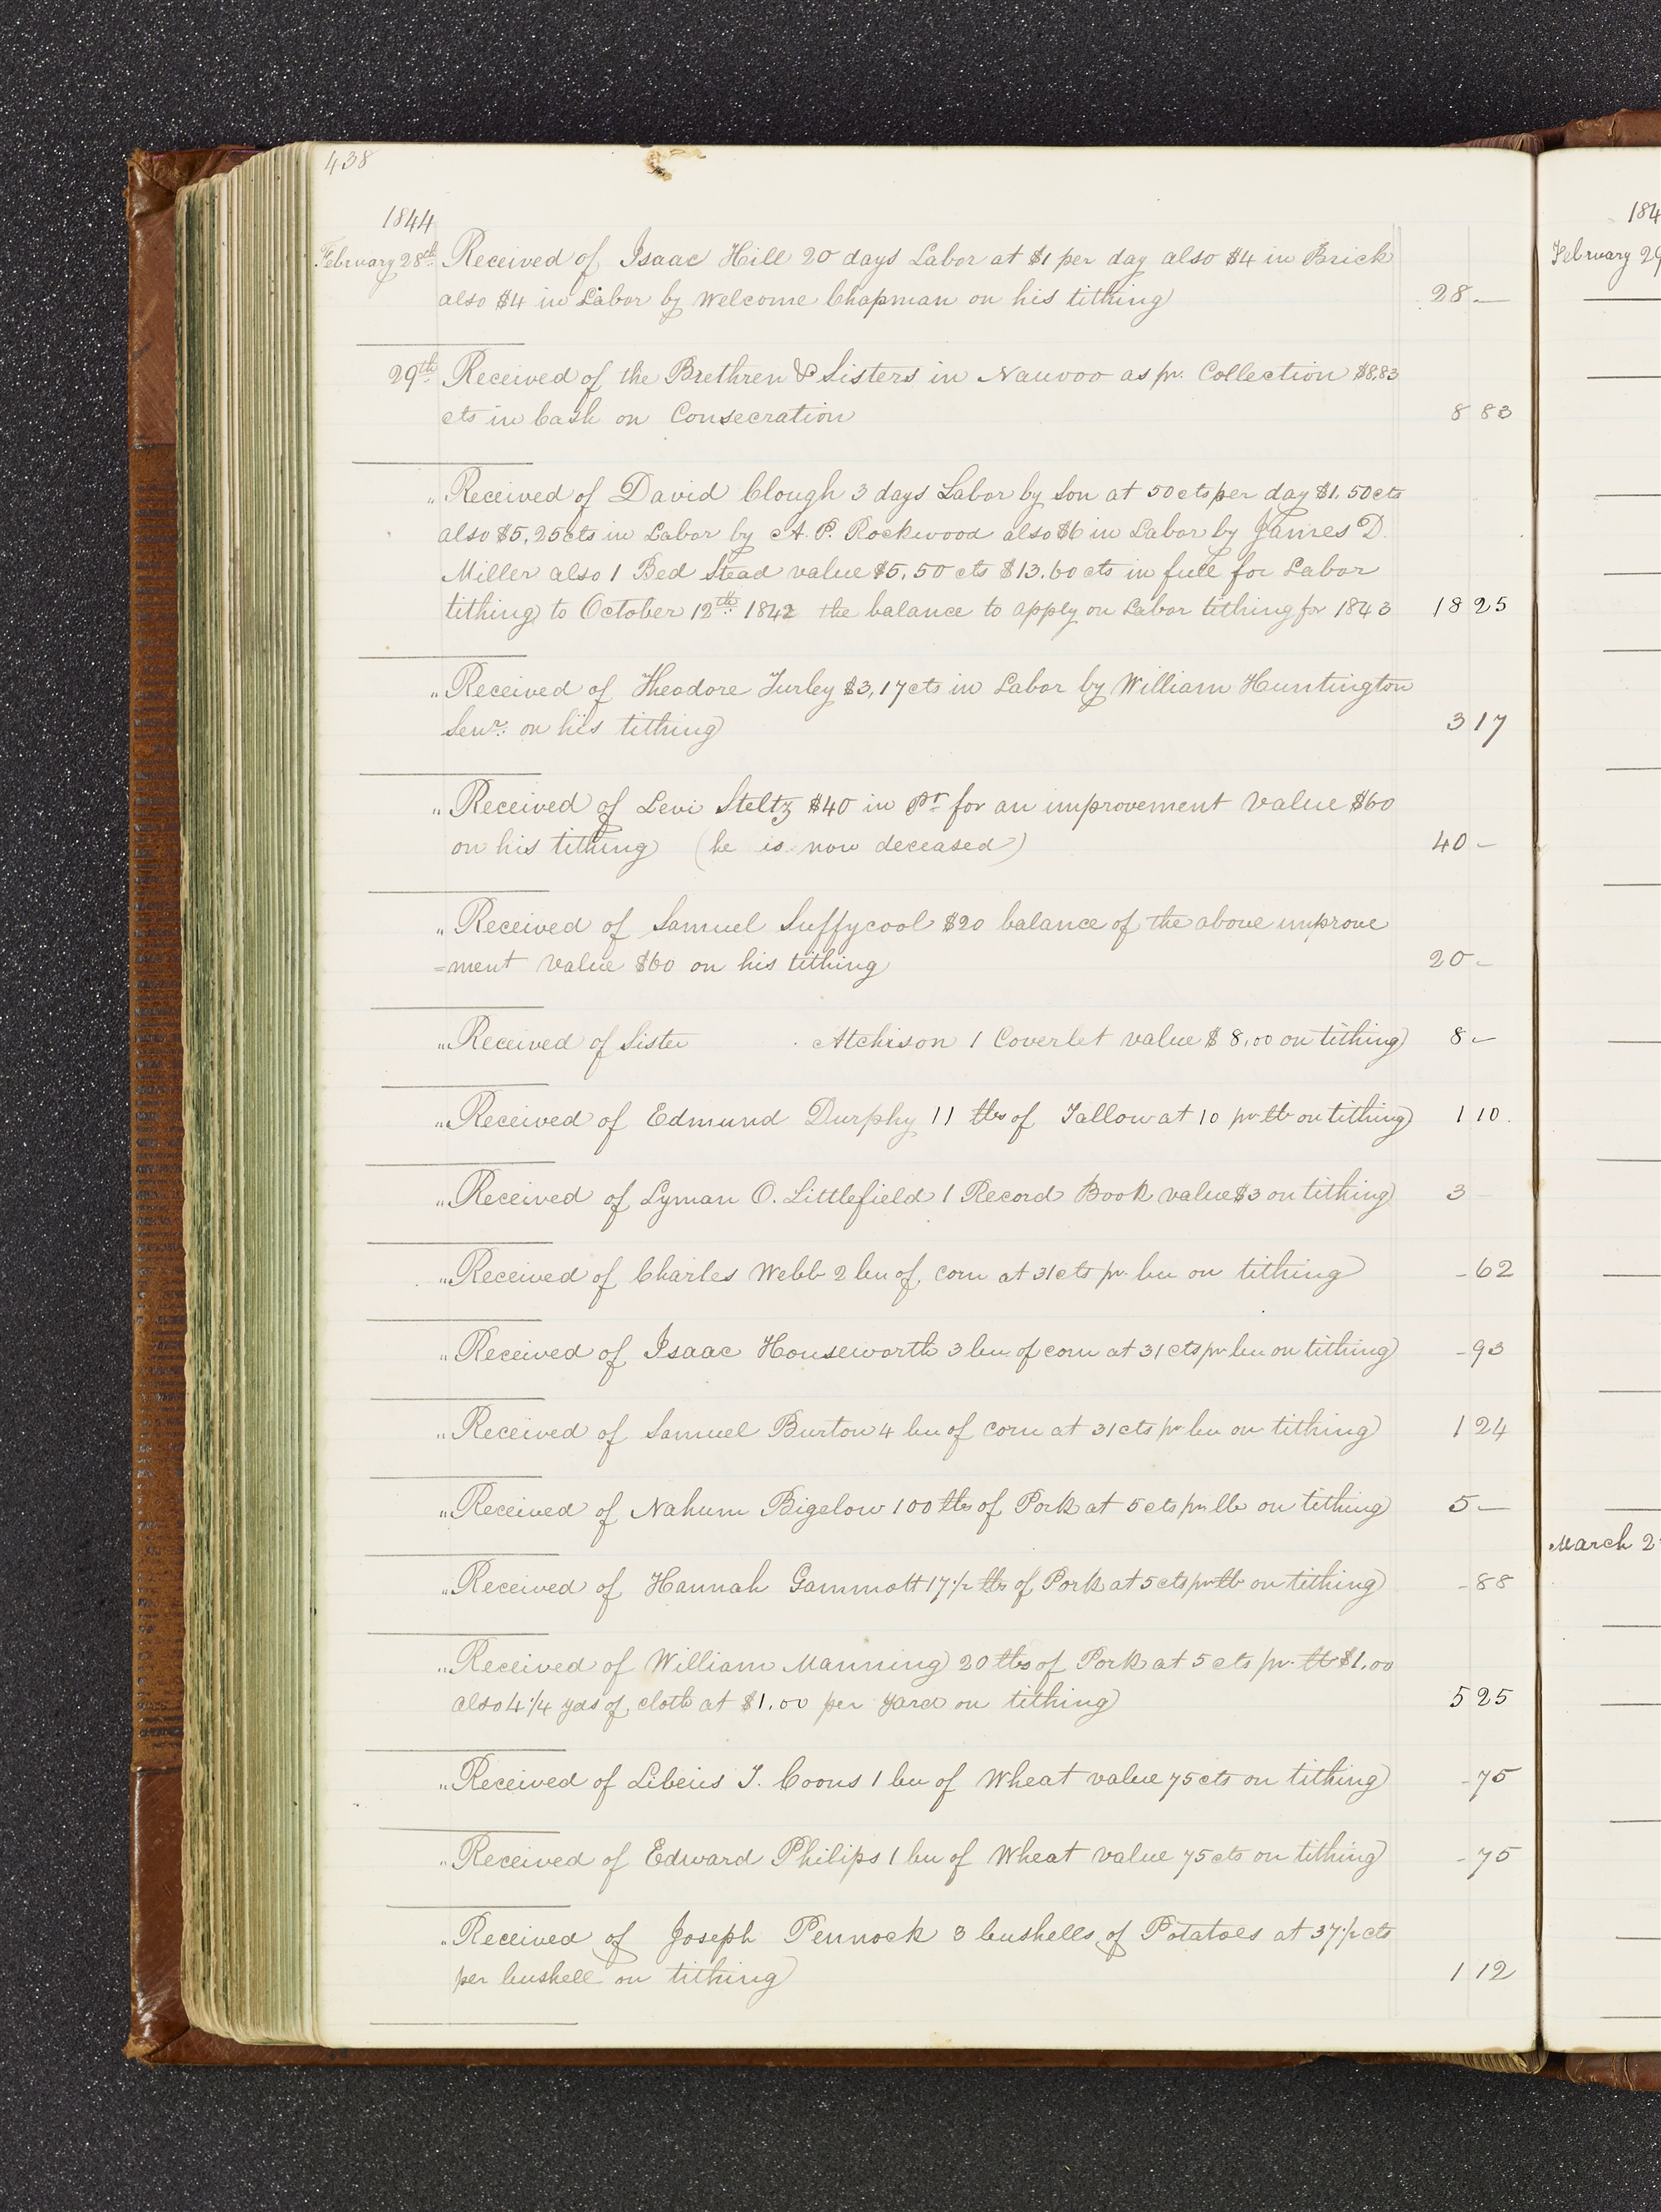 438
1844
February 28th Received of Isaac Hill 20 days Labor at $1 per day also $4 in Brick
also $4 in Labor by Welcome Chapman on his tithing 28.—
29th Received of the Brethren & Sisters in Nauvoo as pr. Collection $8.83
cts in Cash on Consecration 8 83
" Received of David Clough 3 days Labor by Son at 50 cts per day $1.50 cts
also $5,25 cts in Labor by A. P. Rockwood also $6 in Labor by James D.
Miller also 1 Bed Stead value $5.50 cts $13.60 cts in full for Labor
tithing to October 12th 1842 the balance to apply on Labor tithing for 1843 18 25
" Received of Theodore Turley $3,17 cts in Labor by William Huntington
Senr. on his tithing 3 17
" Received of Levi Steltz $40 in Pt for an improvement value $60
on his tithing (he is now deceased) 40 –
" Received of Samuel Suffycool $20 balance of the above improve
=ment value $60 on his tithing 20 –
" Received of Sister Atchison 1 Coverlet value $8.00 on tithing 8 –
" Received of Edmund Durphy 11 lbs of Tallow at 10 pr lb on tithing 1 10.
" Received of Lyman O. Littlefield 1 Record Book value $3 on tithing 3 –
" Received of Charles Webb 2 bu of corn at 31 cts pr. bu on tithing – 62
" Received of Isaac Houseworth 3 bu of corn at 31 cts pr bu on tithing – 93
" Received of Samuel Burton 4 bu of corn at 31 cts pr bu on tithing 1 24
" Received of Nahum Bigelow 100 lbs of Pork at 5 cts pr lb on tithing 5 —
" Received of Hannah Gammott 17 1/2 lbs of Pork at 5 cts pr lb on tithing – 88
" Received of William Manning 20 lbs of Pork at 5 cts pr. lb $1.00
also 4 1/4 yds of cloth at $1.00 per yard on tithing 5 25
" Received of Libeus T. Coons 1 bu of Wheat value 75 cts on tithing – 75
" Received of Edward Philips 1 bu of Wheat value 75 cts on tithing – 75
" Received of Joseph Pennock 3 bushells of Potatoes at 37 1/2 cts
per bushell on tithing 1 12
184
February 29
March 2